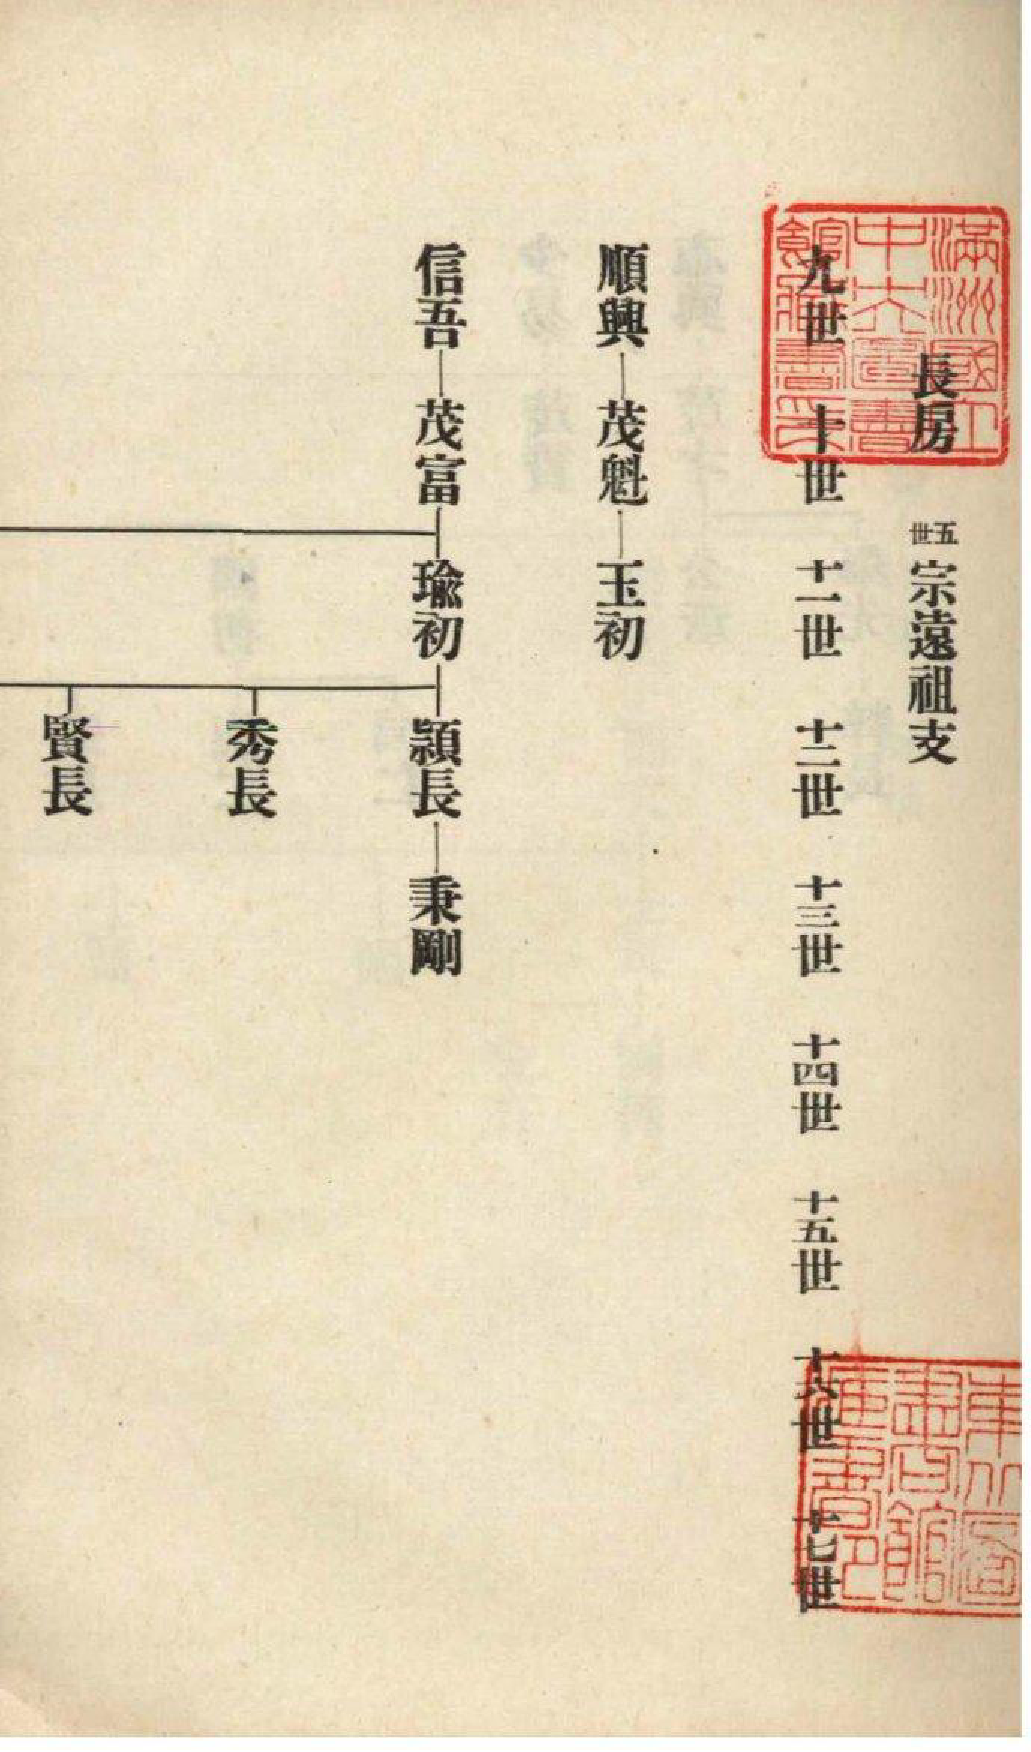 長房 五世 宗遠祖支
九世 十世 十一世 十二世 十三世 十四世 十五世 十六世 十七世
順興 茂魁 玉初
信吾 茂富 瑜初 頴長 秉剛
秀長
賢長
滿洲國立
中央圖書
館籌備處之印